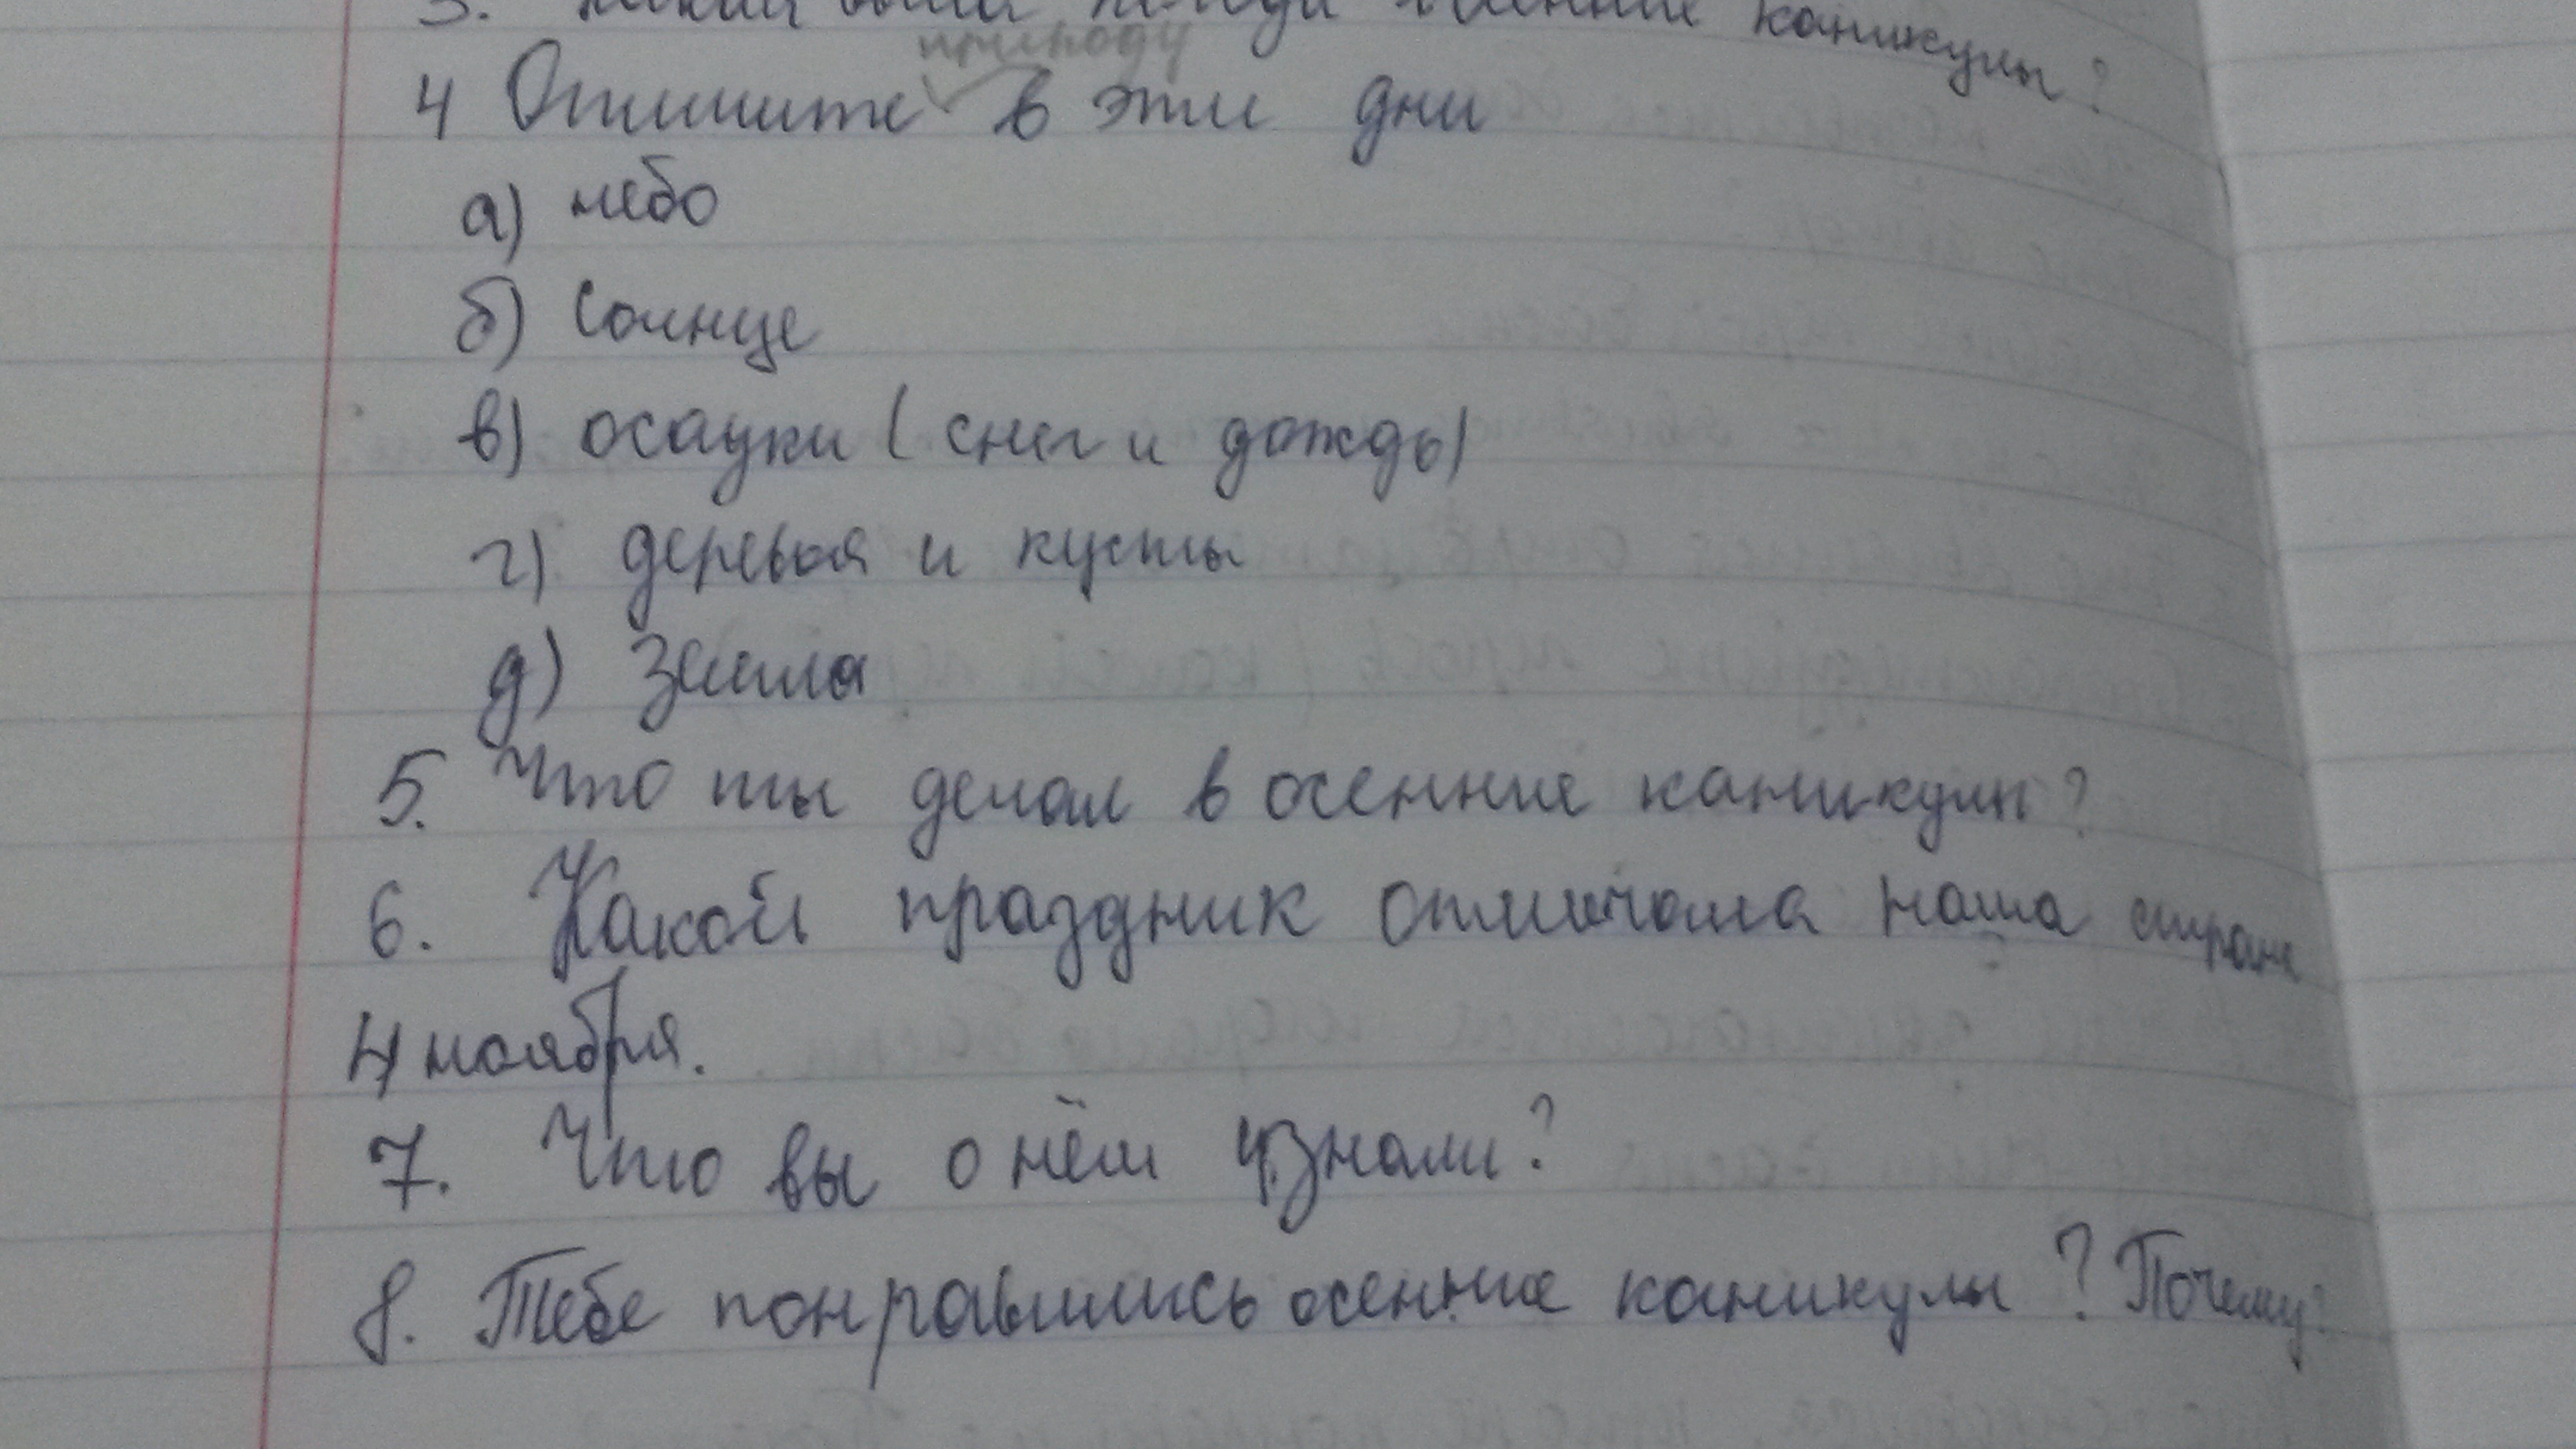 3. была осенние каникулы?
природу
4 Опишите в эти дни
а) небо
б) солнце
в) осадки (снег и дождь)
г) деревья и кусты
д) земла
5. Что ты делал в осенние каникулы?
6. Какой праздник отмичала наша страна
4 ноября.
7. Что вы о нём узнали?
8. Тебе понравились осенние каникулы? Почему?